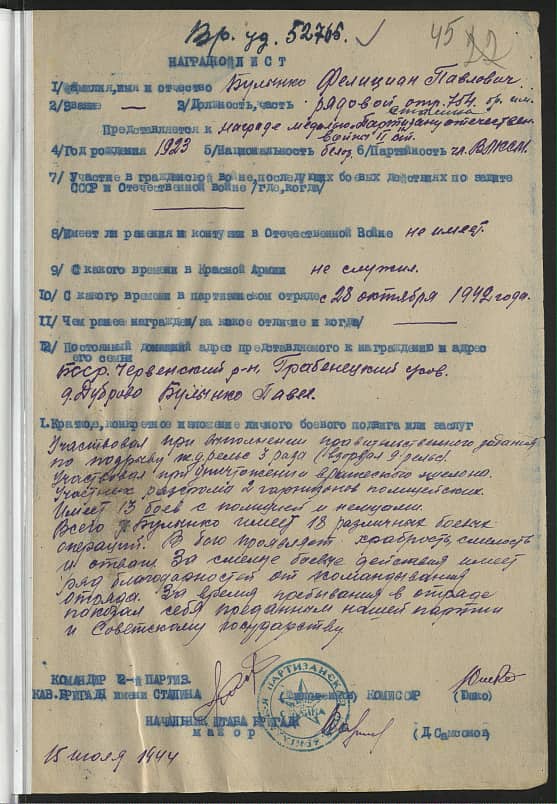 Вр. уд. 52766.
45 22
НАГРАДНОЙ ЛИСТ
1/ Фамилия, имя и отчество Булынко Фелициан Павлович.
2/Звание — 3/Должность, часть рядовой отр. 754 бр. им. Сталина
Представляется к награде медалью Партизану отечествен. войны II ст.
4/Год рождения 1923 5/Национальность белор. 6/Партийность чл. ВЛКСМ.
7/ Участие в гражданской войне, последующих боевых действиях по защите
СССР и Отечественной войне /где, когда/
8/Имеет ли ранения и контузии в Отечественной Войне не имеет.
9/ С какого времени в Красной Армии не служил.
10/ С какого времени в партизанском отряде с 28 октября 1942 года.
11/ Чем ранее награжден/за какое отличие и когда/ —
12/ Постоянный домашний адрес представляемого к награждению и адрес
его семьи
БССР. Червенский р-н. Гребенецкий с/сов.
д. Дуброво Булынко Павел.
1. Краткое, конкретное изложение личного боевого подвига или заслуг
Участвовал при выполнении правительственного задания
по подрыву ж.д. рельс 3 раза
Участвовал при уничтожении вражеского
Участник разгрома 2 гарнизонов полицейских.
Имеет 13 боев с полицией и немцами.
Всего Булынко имеет 18 различных боевых
операций. В бою проявляет храбрость смелость
и отвагу. За смелые боевые действия имеет
ряд благодарностей от командывания
отряда. За время пребывания в отряде
показал себя преданным нашей партии
и Советскому государству
КОМАНДИР 2-й ПАРТИЗ.
КАВ.БРИГАДЫ имени СТАЛИНА КОМИССАР (Юшко)
НАЧАЛЬНИК ШТАБА БРИГАДЫ
майор (Д. Самсонов)
15 июля 1944